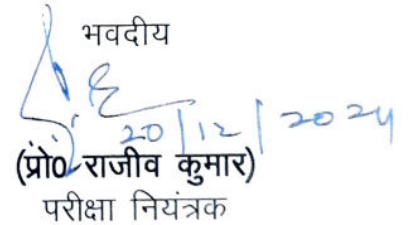 भवदीय
20/12/2024
(प्रो० राजीव कुमार)
परीक्षा नियंत्रक